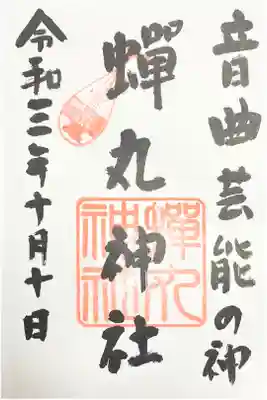 音曲芸能の神
蟬丸神社
蟬丸
神社
令和三年十月十日